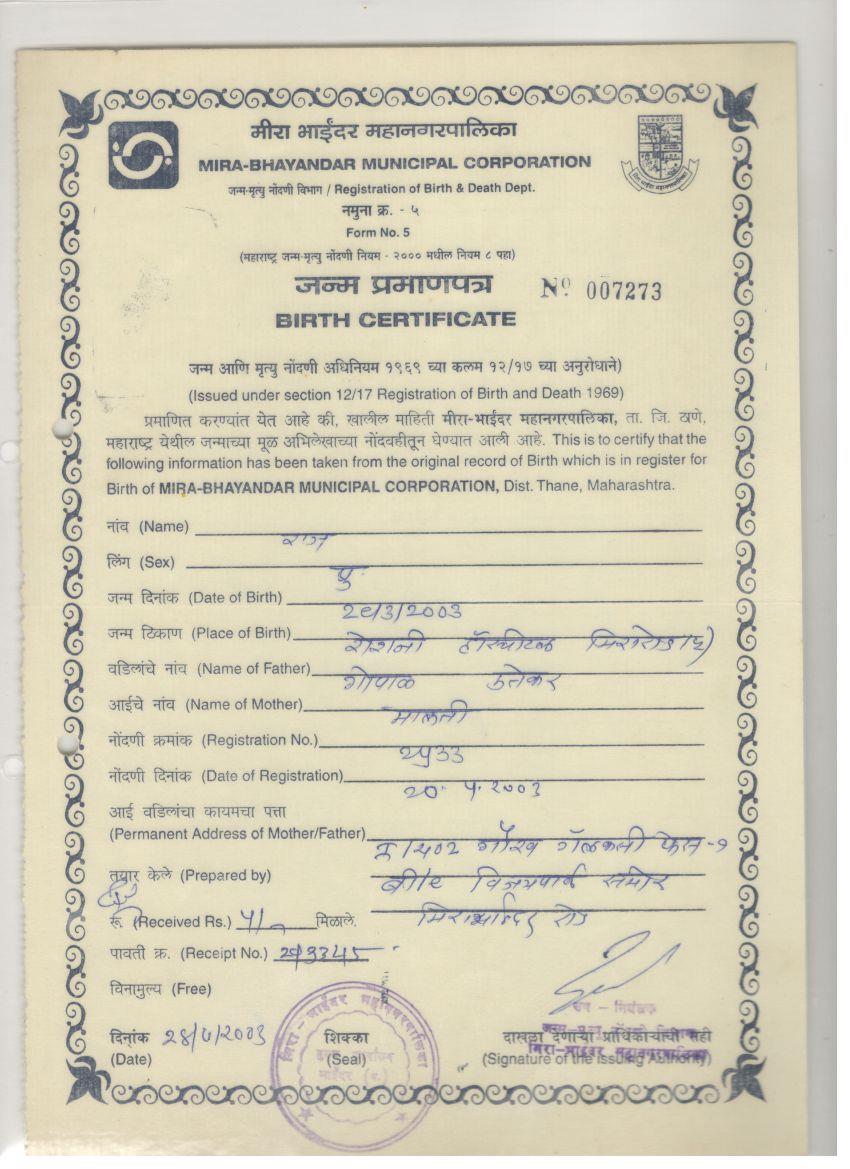 मीरा भाईंदर महानगरपालिका
MIRA-BHAYANDAR MUNICIPAL CORPORATION
जन्म-मृत्यु नोंदणी विभाग / Registration of Birth & Death Dept.
नमुना क्र. - ५
Form No. 5
(महाराष्ट्र जन्म-मृत्यु नोंदणी नियम - २००० मधील नियम ८ पहा)
जन्म प्रमाणपत्र Nº 007273
BIRTH CERTIFICATE
जन्म आणि मृत्यु नोंदणी अधिनियम १९६९ च्या कलम १२/१७ च्या अनुरोधाने)
(Issued under section 12/17 Registration of Birth and Death 1969)
प्रमाणित करण्यांत येत आहे की, खालील माहिती मीरा-भाईंदर महानगरपालिका, ता. जि. ठाणे,
महाराष्ट्र येथील जन्माच्या मूळ अभिलेखाच्या नोंदवहीतून घेण्यात आली आहे. This is to certify that the
following information has been taken from the original record of Birth which is in register for
Birth of MIRA-BHAYANDAR MUNICIPAL CORPORATION, Dist. Thane, Maharashtra.
नांव (Name) राज
लिंग (Sex) पु
जन्म दिनांक (Date of Birth)
जन्म ठिकाण (Place of Birth) रोशनी हॉस्पीटल
वडिलांचे नांव (Name of Father) गोपाळ उतेकर
आईचे नांव (Name of Mother) मालती
नोंदणी क्रमांक (Registration No.) २५33
नोंदणी दिनांक (Date of Registration) २०.५.२००३
आई वडिलांचा कायमचा पत्ता
(Permanent Address of Mother/Father) गौरव गॅलक्सी फेस-१
तयार केले (Prepared by) विजयपार्क समोर
रू. (Received Rs.) ५/- मिळाले. रोड
पावती क्र. (Receipt No.)
विनामुल्य (Free)
दिनांक २८/५/२००३ शिक्का दाखला देणाऱ्या प्राधिकाऱ्याची सही
(Date) (Seal) (Signature of the Issuing Authority)